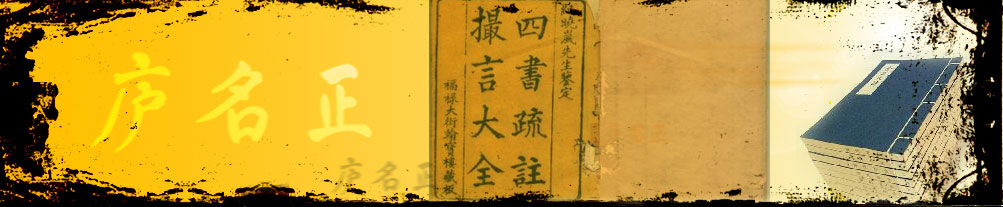 庐名正
庐名正
四書疏註
撮言大全
先生鑒定
福祿大街翰寶樓藏板